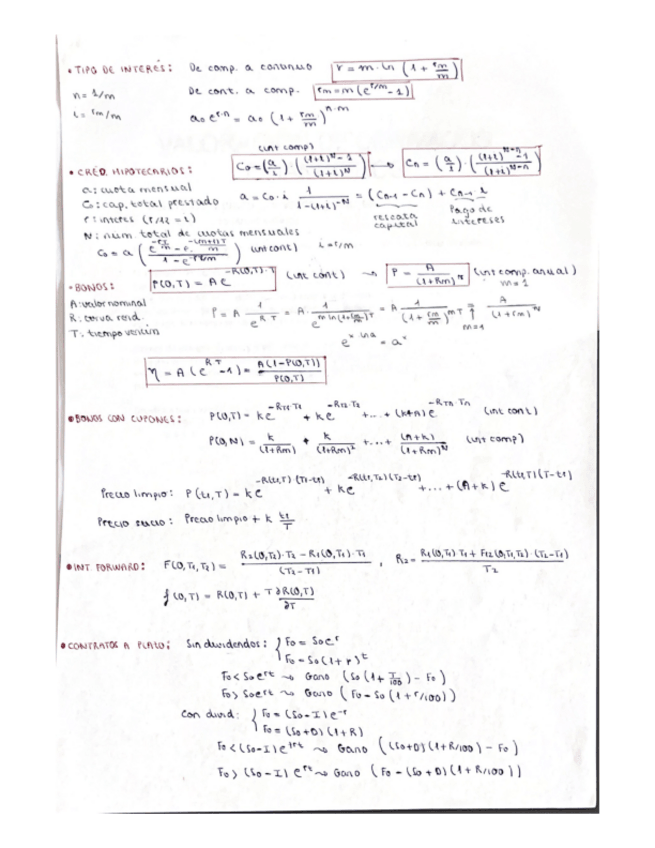 • TIPO DE INTERÉS: De comp. a continuo r = m · ln (1 + rm/m)
n = 1/m De cont. a comp. rm = m (e^(r/m) - 1)
i = rm/m a₀ e^(r·n) = a₀ (1 + rm/m)^(n·m)
(int comp)
• CRÉD. HIPOTECARIOS: C₀ = (a/i) · ((1+i)^N - 1)/(1+i)^N → Cn = (a/i) · ((1+i)^(N-n) - 1)/(1+i)^(N-n)
a: cuota mensual
C₀: cap. total prestado a = C₀ · i 1/(1-(1+i)^-N) = (Cn-1 - Cn) + Cn-1 i
r: interes (r/12 = i) rescata capital Pago de intereses
N: num total de cuotas mensuales
(int cont) i = r/m
• BONOS: P(0,T) = A e^(-R(0,T)·T) (int cont) → P = A/(1+Rm)^n (int comp. anual) m = 1
A: valor nominal
T: tiempo
P = A 1/e^(RT) = A · 1/e^(m ln(1+rm/m)T) = A 1/(1+rm/m)^(mT) = A/(1+rm)^N
m=1
e^(x·ln a) = a^x
η = A (e^(RT) - 1) = A(1-P(0,T))/P(0,T)
• BONOS CON CUPONES: P(0,T) = k e^(-RT1·T1) + k e^(-RT2·T2) + ... + (k+A) e^(-RTn·Tn) (int cont)
P(0,N) = k/(1+Rm) + k/(1+Rm)² + ... + (A+k)/(1+Rm)^N (int comp)
Precio limpio: P(t1,T) = k e^(-R(t1,T)(T1-t1)) + k e^(-R(t1,T2)(T2-t1)) + ... + (A+k) e^(-R(t1,T)(T-t1))
Precio sucio: Precio limpio + k t1/T
• INT. FORWARD: F(0,T1,T2) = (R2(0,T2)·T2 - R1(0,T1)·T1)/(T2-T1) , R2 = (R1(0,T1)·T1 + F12(0,T1,T2)·(T2-T1))/T2
f(0,T) = R(0,T) + T ∂R(0,T)/∂T
• CONTRATOS A PLAZO: Sin dividendos: { F₀ = S₀e^r
F₀ = S₀(1+r)^t
F₀ < S₀e^rt → Gano (S₀(1 + T/100) - F₀)
F₀ > S₀e^rt → Gano (F₀ - S₀(1 + r/100))
Con divid: { F₀ = (S₀-I)e^-r
F₀ = (S₀+D)(1+R)
F₀ < (S₀-I)e^rt → Gano ((S₀+D)(1+R/100) - F₀)
F₀ > (S₀-I)e^rt → Gano (F₀ - (S₀+D)(1+R/100))